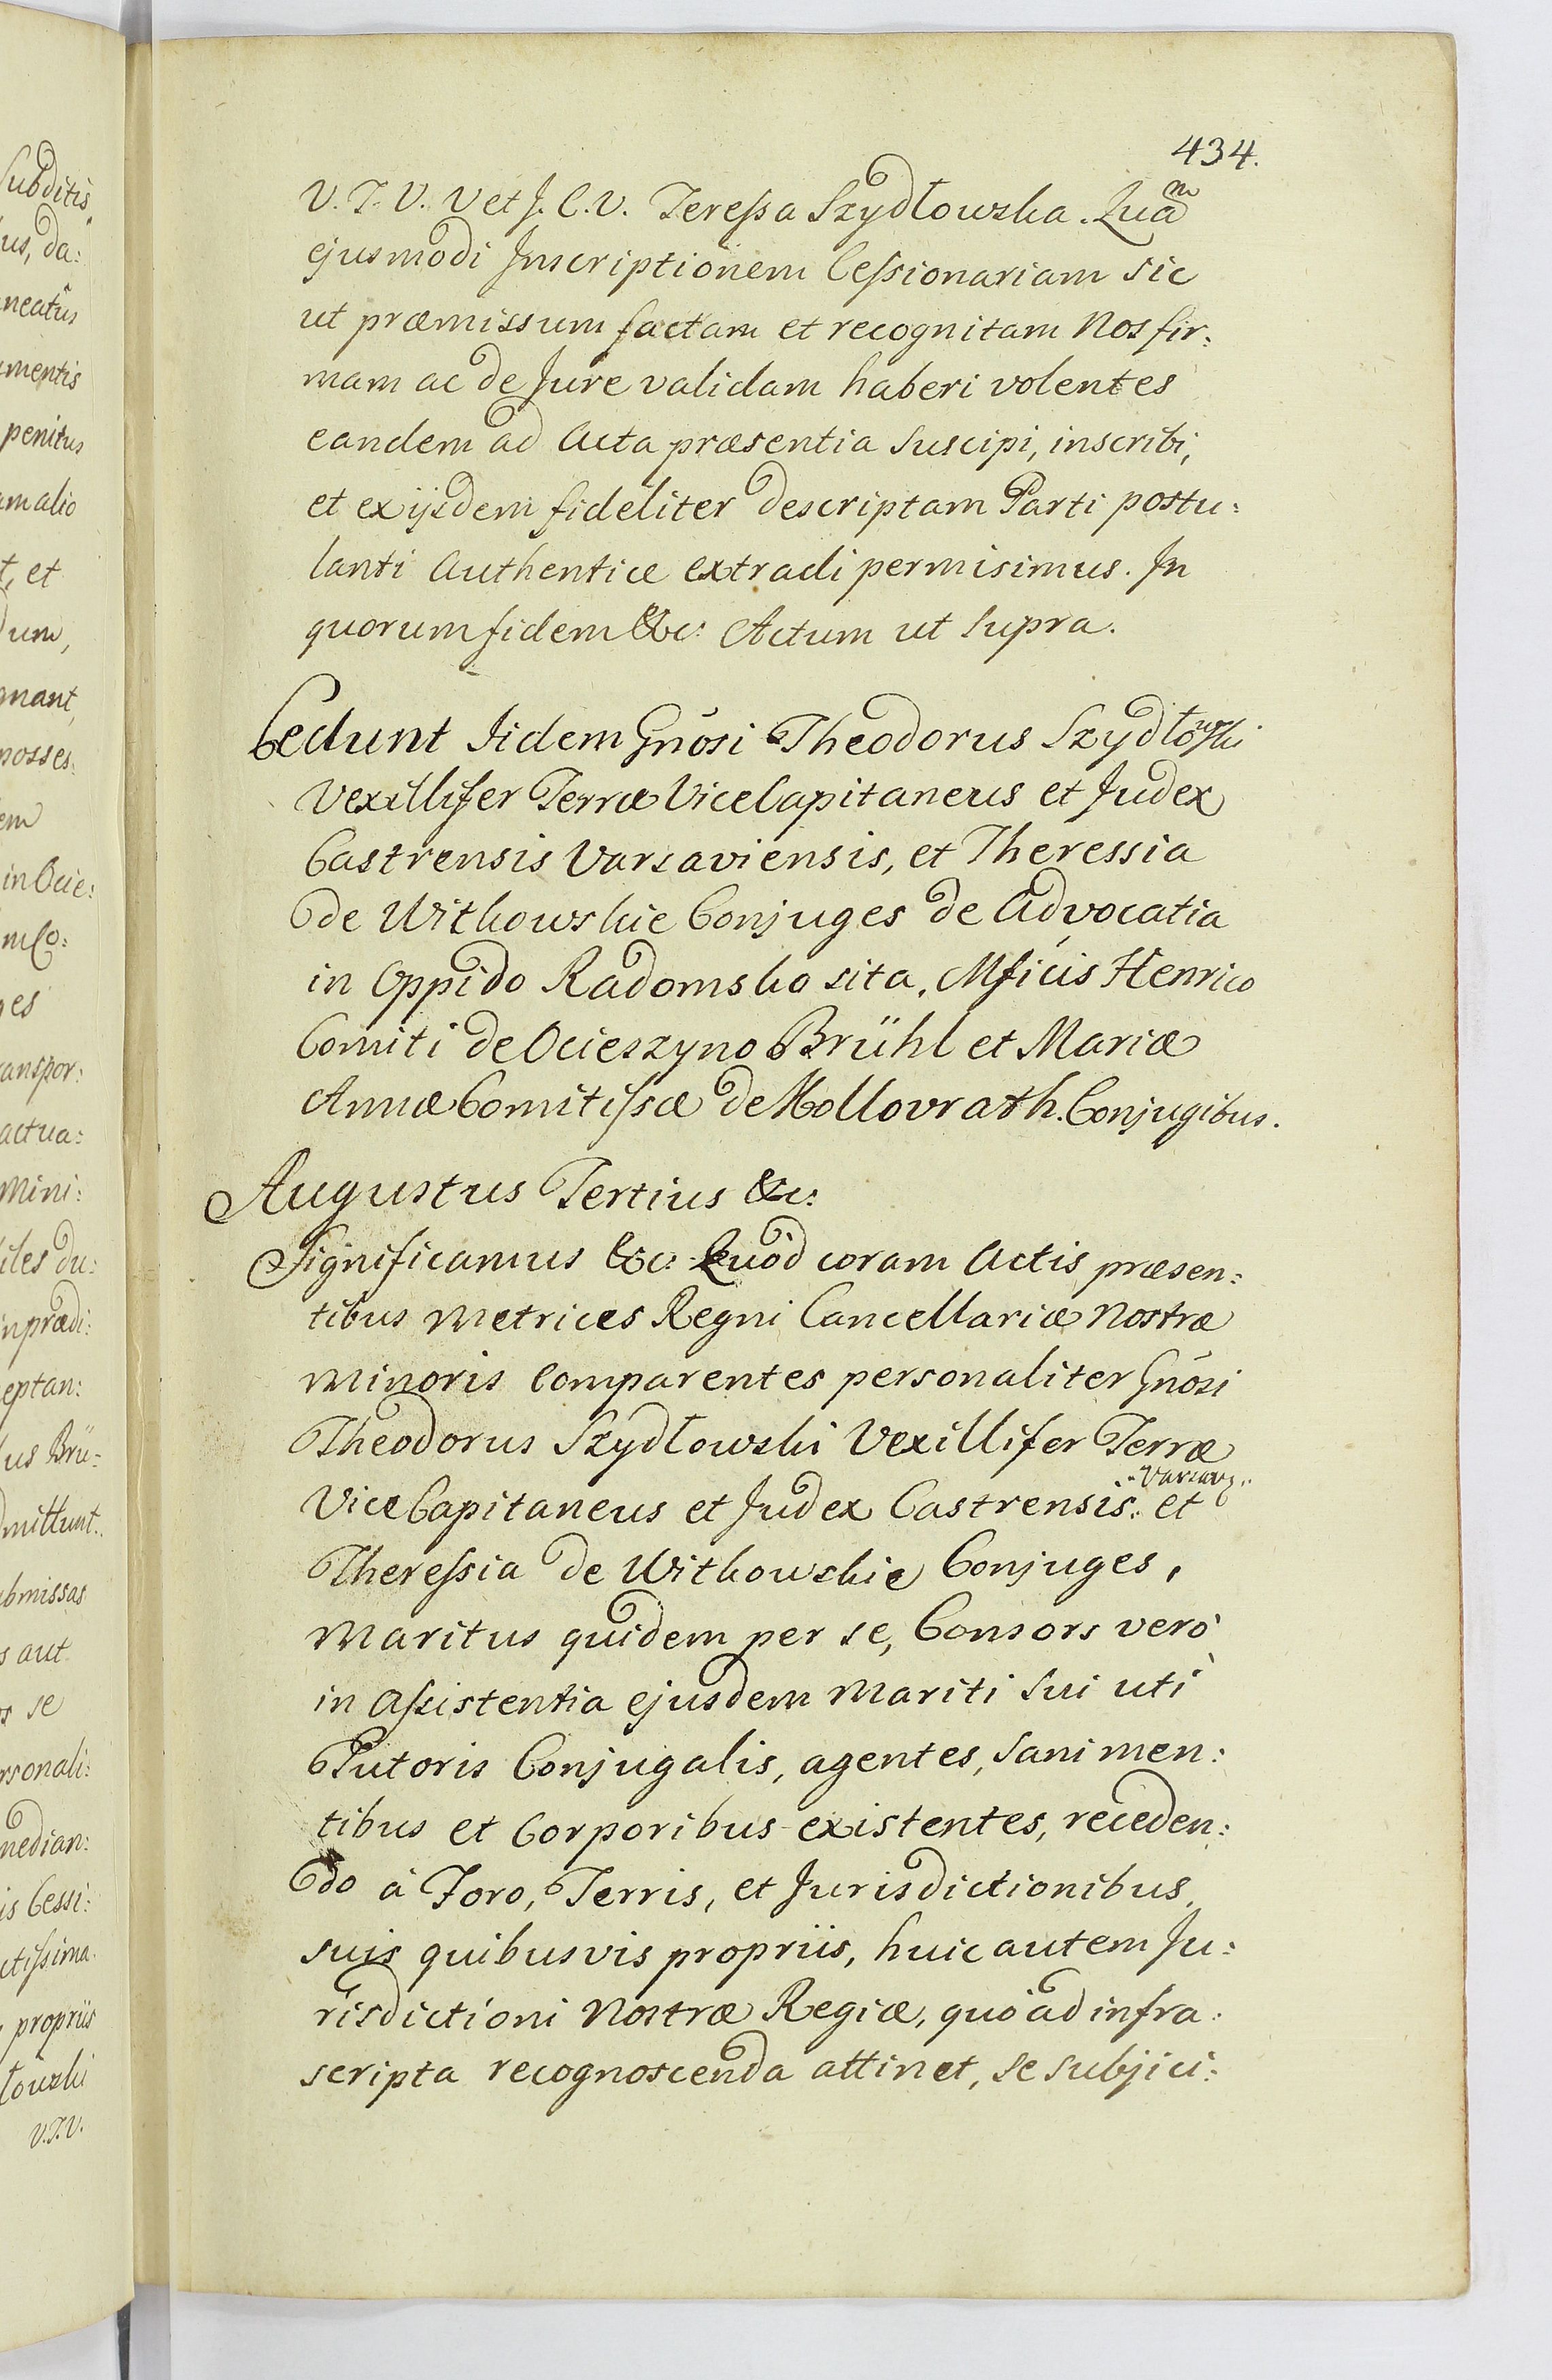 Subditis
us, da:
neatus
mentis
penitus
am alio
t, et
um,
gnant,
nosses:
em
in Ocie:
m Co:
ges
ranspor:
actua:
mini:
iles du:
n prædi:
eptan:
us Brü:
mittunt.
bmissas
s aut
se
rsonali:
median:
is Cessi:
ctissima
propriis
towski
V.T.V.
434.
V. T. V. V et J. C. V. Teressa Szydłowska. Quãm
ejusmodi Inscriptionem Cessionariam sic
ut præmissum factam et recognitam Nos fir:
mam ac de Jure validam haberi volentes
eandem ad Acta præsentia suscipi, inscribi,
et ex ijsdem fideliter descriptam Parti postu:
lanti Authentice extradi permisimus. In
quorum fidem &c: Actum ut supra.
Cedunt Iidem Gnosi Theodorus Szydłowski
Vexillifer Terræ ViceCapitaneus et Judex
Castrensis Varsaviensis, et Theressia
de Witkowskie Conjuges de Advocatia
in Oppido Radomsko sita, Mficis Henrico
Comiti de Ocieszyno Brühl et Mariæ
Annæ Comitissæ de Kollovrath Conjugibus.
Augustus Tertius &c:
Significamus &c: Quòd coram Actis præsen:
tibus Metrices Regni Cancellariæ Nostræ
Minoris Comparentes personaliter Gnosi
Theodorus Szydłowski Vexillifer Terræ
ViceCapitaneus et Judex Castrensis Varsavz. et
Theressia de Witkowskie Conjuges,
Maritus quidem per se, Consors verò
in Assistentia ejusdem Mariti sui uti
Tutoris Conjugalis, agentes, sani men:
tibus et Corporibus existentes, receden:
do à Foro, Terris, et Jurisdictionibus
suis quibusvis propriis, huic autem Ju:
risdictioni Nostræ Regiæ, quò ad infra
scripta recognoscenda attinet, se subjici: